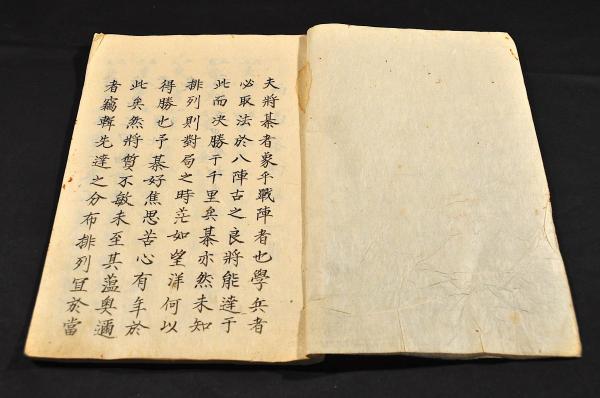 夫將棊者象乎戰陣者也學兵者
必取法於八陣古之良將能達于
此而决勝于千里矣棊亦然未知
排列則對局之時茫如望洋何以
得勝也予棊好焦思苦心有年於
此矣然將質不敏未至其蕰奧邇
者竊輯先達之分布排列宜於當